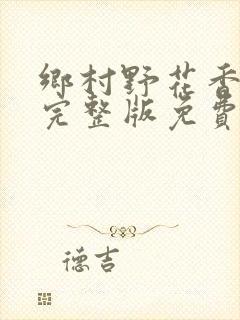 鄉村野花香
完整版免費
德吉